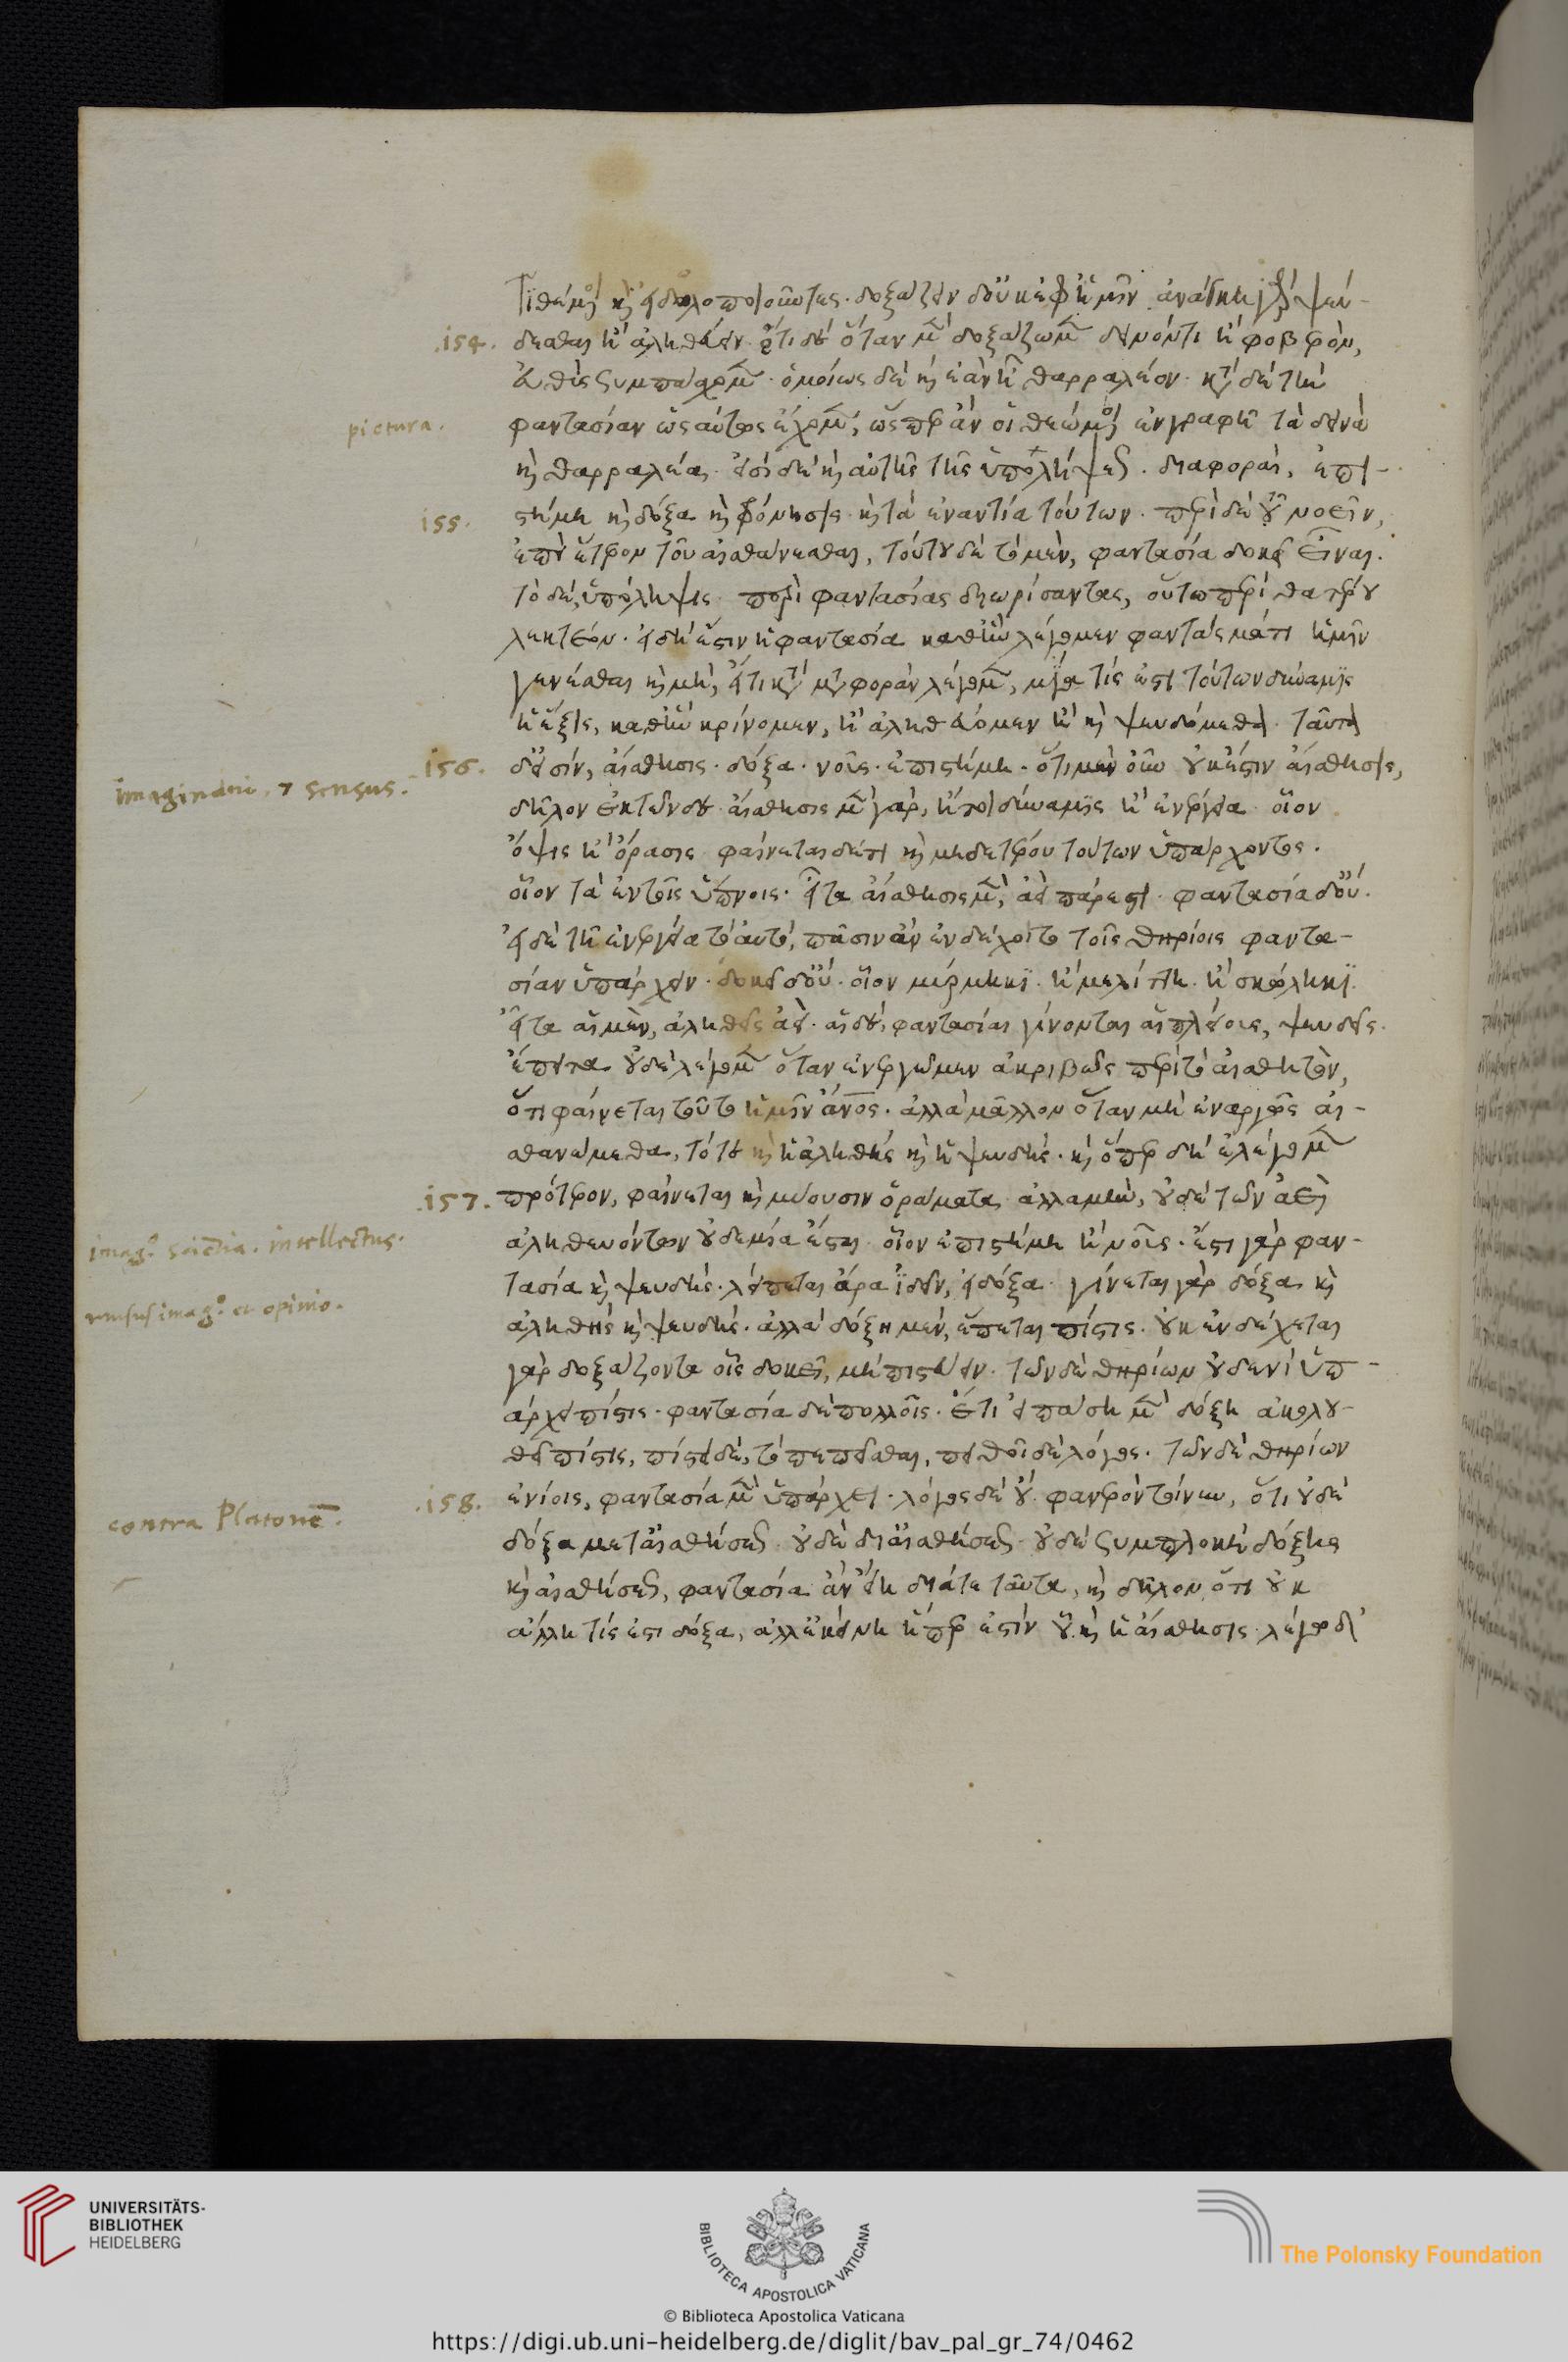 τιθέμενοι καὶ εἰδωλοποιοῦντες. δοξάζειν δ' οὐκ ἐφ' ἡμῖν. ἀνάγκη γὰρ ἢ ψεύ-
.154. δεσθαι ἢ ἀληθεύειν. ἔτι δὲ ὅταν μὲν δοξάζωμεν δεινόν τι ἢ φοβερόν,
εὐθὺς συμπάσχομεν. ὁμοίως δὲ κἂν ᾖ θαρραλέον. κατὰ δὲ τὴν
pictura. φαντασίαν ὡσαύτως ἔχομεν, ὥσπερ ἂν οἱ θεώμενοι ἐν γραφῇ τὰ δεινὰ
καὶ θαρραλέα. εἰσὶ δὲ καὶ αὐτῆς τῆς ὑπολήψεως διαφοραί, ἐπι-
155. στήμη καὶ δόξα καὶ φρόνησις καὶ τὰ ἐναντία τούτων. περὶ δὲ τοῦ νοεῖν,
ἐπεὶ ἕτερον τοῦ αἰσθάνεσθαι, τούτου δὲ τὸ μὲν, φαντασία δοκεῖ εἶναι.
τὸ δὲ, ὑπόληψις. περὶ φαντασίας διορίσαντας, οὕτω περὶ θατέρου
λεκτέον. εἰ δή ἐστιν ἡ φαντασία καθ' ἣν λέγομεν φαντάσματι ἡμῖν
γενέσθαι καὶ μὴ, εἴ τι κατὰ μεταφορὰν λέγομεν, μία τίς ἐστι τούτων δύναμις
ἢ ἕξις, καθ' ἣν κρίνομεν, ἢ ἀληθεύομεν ἢ καὶ ψευδόμεθα. ταῦτα
imaginatio. 7 sensus. 156. δ' εἰσὶν, αἴσθησις. δόξα. νοῦς. ἐπιστήμη. ὅτι μὲν οὖν οὐκ ἔστιν αἴσθησις,
δῆλον ἐκ τῶνδε. αἴσθησις μὲν γάρ, ἤτοι δύναμις ἢ ἐνέργεια. οἷον
ὄψις ἢ ὅρασις. φαίνεται δέ τι καὶ μηδετέρου τούτων ὑπάρχοντος.
οἷον τὰ ἐν τοῖς ὕπνοις. εἶτα αἴσθησις μὲν, ἀεὶ πάρεστι. φαντασία δ' οὔ.
εἰ δὲ τῇ ἐνεργείᾳ τὸ αὐτὸ, πᾶσιν ἂν ἐνδέχοιτο τοῖς θηρίοις φαντα-
σίαν ὑπάρχειν. δοκεῖ δ' οὔ. οἷον μύρμηκι. ἢ μελίττῃ. ἢ σκώληκι.
εἶτα αἱ μὲν, ἀληθεῖς ἀεί. αἱ δὲ, φαντασίαι γίνονται αἱ πλείους, ψευδεῖς.
ἔπειτα οὐδὲ λέγομεν ὅταν ἐνεργῶμεν ἀκριβῶς περὶ τὸ αἰσθητὸν,
ὅτι φαίνεται τοῦτο ἡμῖν ἄνος. ἀλλὰ μᾶλλον ὅταν μὴ ἐναργῶς αἰ-
σθανώμεθα, τότε καὶ ἢ ἀληθὴς καὶ ἢ ψευδής. καὶ ὅπερ δὴ ἐλέγομεν
.157. πρότερον, φαίνεται καὶ μύουσιν ὁράματα. ἀλλὰ μὴν, οὐδὲ τῶν ἀεὶ
imago. scientia. intellectus. ἀληθευόντων οὐδεμία ἔσται. οἷον ἐπιστήμη ἢ νοῦς. ἔστι γὰρ φαν-
τασία καὶ ψευδής. λείπεται ἄρα ἰδεῖν, εἰ δόξα. γίνεται γὰρ δόξα καὶ
rursus imago. et opinio. ἀληθὴς καὶ ψευδής. ἀλλὰ δόξῃ μὲν, ἕπεται πίστις. οὐκ ἐνδέχεται
γὰρ δοξάζοντα οἷς δοκεῖ, μὴ πιστεύειν. τῶν δὲ θηρίων οὐδενὶ ὑπ-
άρχει πίστις. φαντασία δὲ πολλοῖς. ἔτι εἰ πάσῃ μὲν δόξῃ ἀκολου-
θεῖ πίστις, πίστει δὲ, τὸ πεπεῖσθαι, πειθοῖ δὲ λόγος. τῶν δὲ θηρίων
contra Platonē. .158. ἐνίοις, φαντασία μὲν ὑπάρχει. λόγος δὲ οὔ. φανερὸν τοίνυν, ὅτι οὐδὲ
δόξα μετ' αἰσθήσεως. οὐδὲ δι' αἰσθήσεως. οὐδὲ συμπλοκὴ δόξης
καὶ αἰσθήσεως, φαντασία ἂν εἴη διά τε ταῦτα, καὶ δῆλον ὅτι οὐκ
ἄλλη τίς ἐστι δόξα, ἀλλ' ἐκείνη ἥπερ ἐστὶν οὗ καὶ ἡ αἴσθησις. λέγω δ'
UNIVERSITÄTS-
BIBLIOTHEK
HEIDELBERG
BIBLIOTECA APOSTOLICA VATICANA
The Polonsky Foundation
© Biblioteca Apostolica Vaticana
https://digi.ub.uni-heidelberg.de/diglit/bav_pal_gr_74/0462